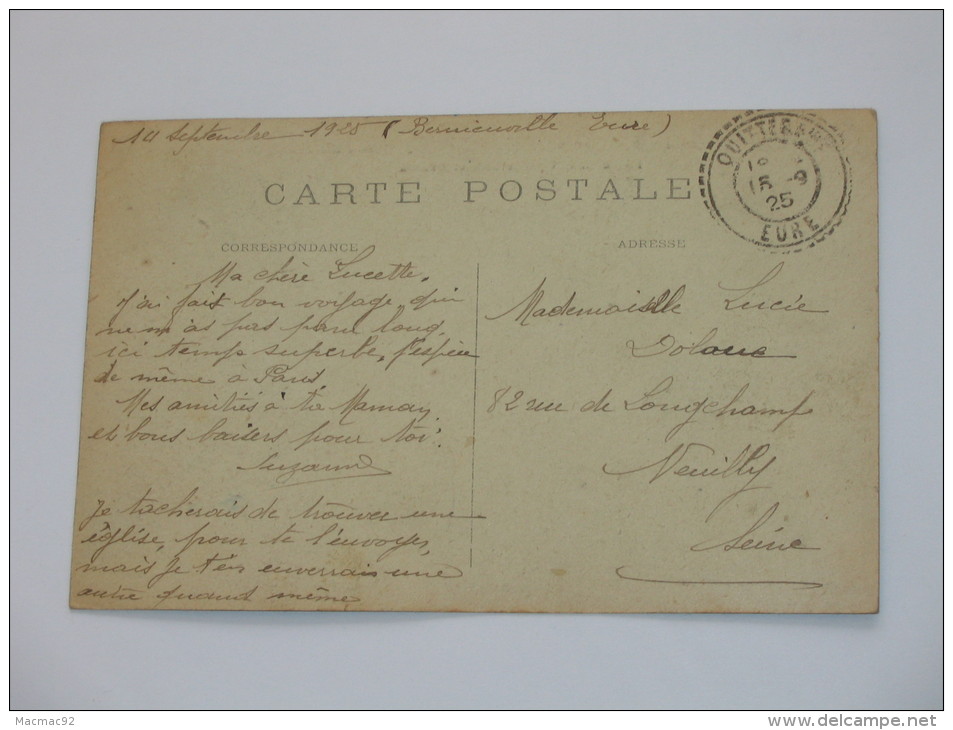 14 Septembre 1925 (Bernienville Eure)
QUITTEBEUF
18
15 -9
25
EURE
CARTE POSTALE
CORRESPONDANCE
ADRESSE
Ma chère Lucette,
J'ai fait bon voyage, qui
ne m'as pas paru long,
ici temps superbe, j'espère
de même à Paris,
Mes amitiés à ta Maman,
et bons baisers pour toi.
Suzanne
Je tacherais de trouver une
église, pour te l'envoyer,
mais je t'en enverrais une
autre quand même,
Mademoiselle Lucie
82 rue de Longchamp
Neuilly
Seine
Macmac92
www.delcampe.net